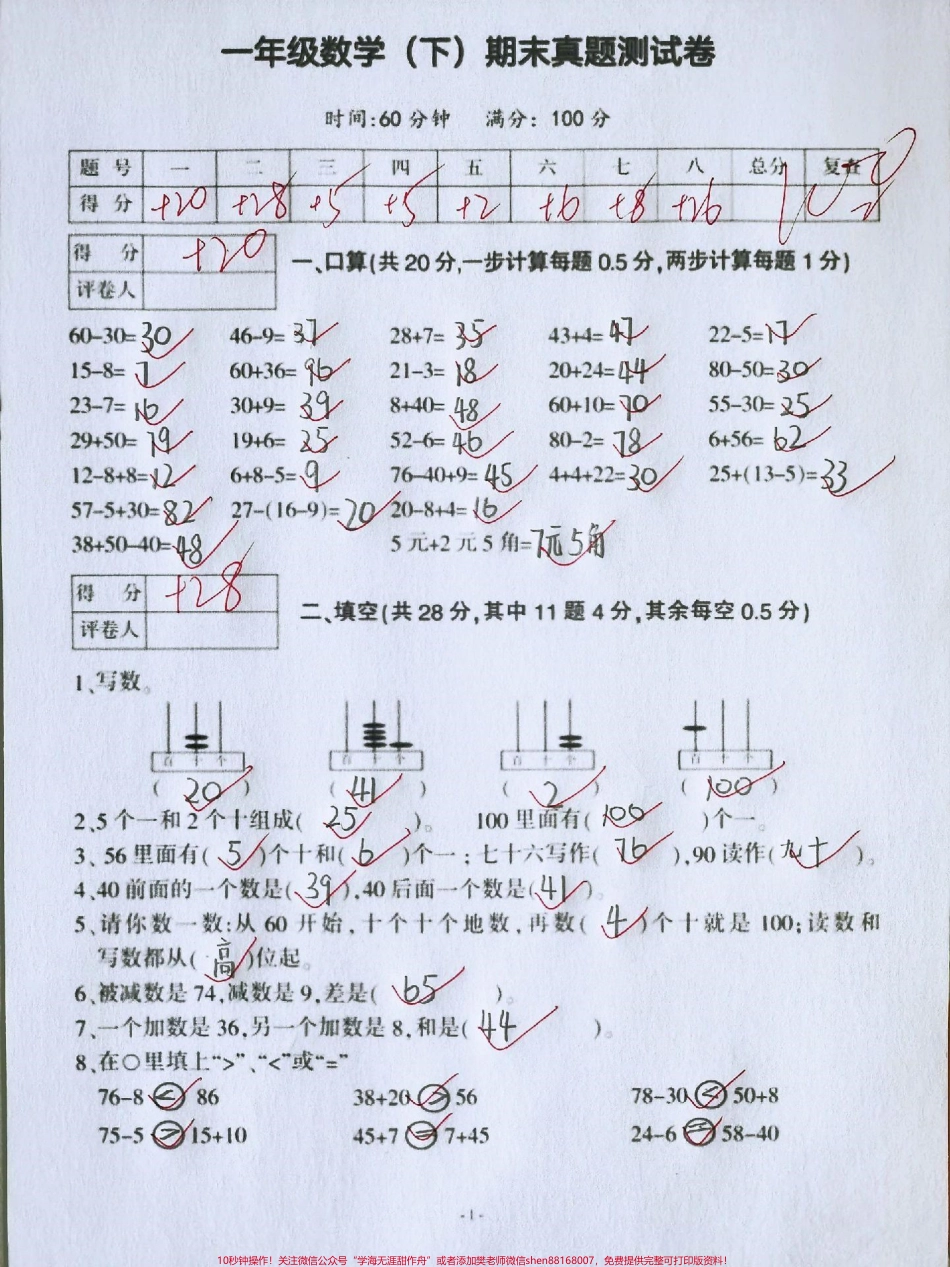 一年级数学（下）期末真题测试卷
时间:60分钟 满分：100分
题 号 一 二 三 四 五 六 七 八 总分 复查
得 分 +20 +28 +5 +5 +2 +6 +8 +26 100
得 分 +20
评卷人
一、口算(共20分,一步计算每题0.5分,两步计算每题1分)
60-30=30 46-9=37 28+7=35 43+4=47 22-5=17
15-8=7 60+36=96 21-3=18 20+24=44 80-50=30
23-7=16 30+9=39 8+40=48 60+10=70 55-30=25
29+50=79 19+6=25 52-6=46 80-2=78 6+56=62
12-8+8=12 6+8-5=9 76-40+9=45 4+4+22=30 25+(13-5)=33
57-5+30=82 27-(16-9)=20 20-8+4=16
38+50-40=48 5元+2元5角=7元5角
得 分 +28
评卷人
二、填空(共28分,其中11题4分,其余每空0.5分)
1、写数。
百 十 个 百 十 个 百 十 个 百 十 个
( 20 ) ( 41 ) ( 2 ) ( 100 )
2、5个一和2个十组成( 25 )。 100里面有( 100 )个一。
3、56里面有( 5 )个十和( 6 )个一;七十六写作( 76 ),90读作(九十)。
4、40前面的一个数是(39),40后面一个数是(41)。
5、请你数一数:从60开始,十个十个地数,再数( 4 )个十就是100;读数和
写数都从( 高 )位起。
6、被减数是74,减数是9,差是( 65 )。
7、一个加数是36,另一个加数是8,和是( 44 )。
8、在○里填上“>”、“<”或“=”
76-8 < 86 38+20 > 56 78-30 < 50+8
75-5 > 15+10 45+7 = 7+45 24-6 = 58-40
- 1 -
10秒钟操作！关注微信公众号“学海无涯甜作舟”或者添加樊老师微信shen88168007，免费提供完整可打印版资料！